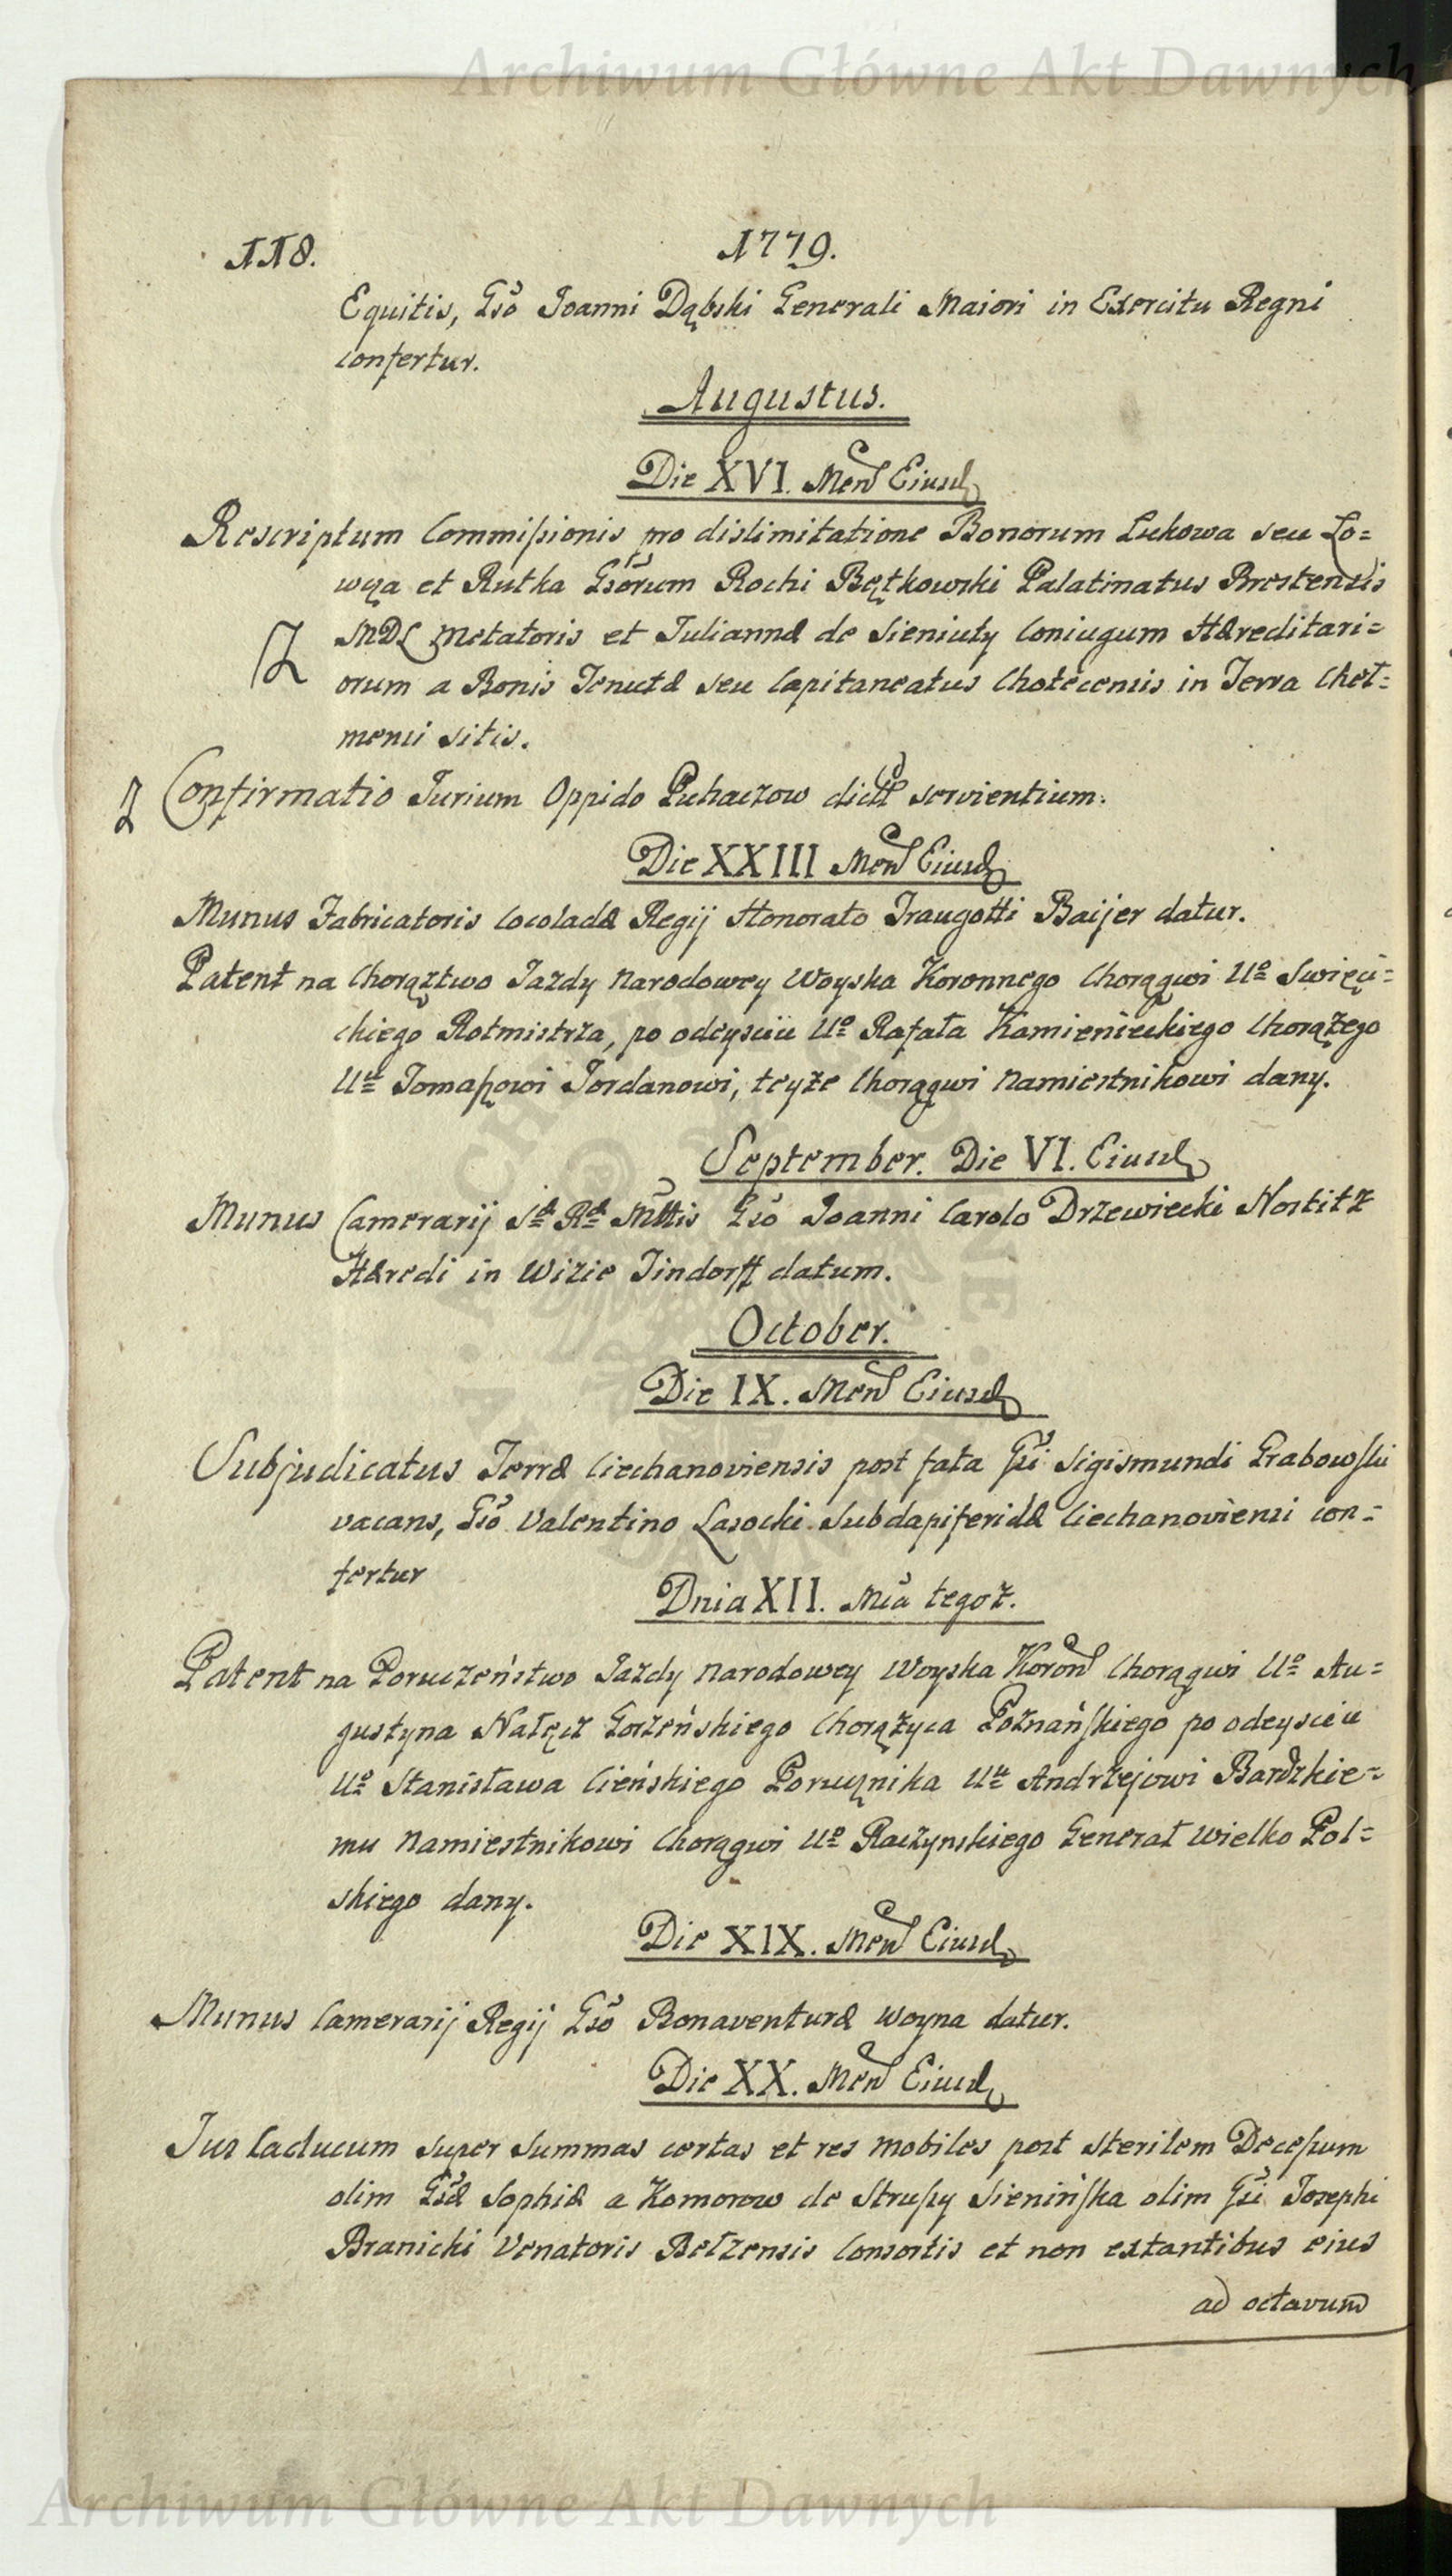 Archiwum Główne Akt Dawnych
118.
1779.
Equitis, Gso Joanni Dąbski Generali Maiori in Exercitu Regni
confertur.
Augustus.
Die XVI. Men Eiusd
Rescriptum Commissionis pro dislimitatione Bonorum Lukowa seu Lo=
wcza et Rutka Gsorum Rochi Bętkowski Palatinatus Brestensis
MDL Metatoris et Juliannæ de Sieniuty Coniugum Hæreditari=
orum a Bonis Tenutæ seu Capitaneatus Chotecensis in Terra Cheł=
mensi sitis.
Confirmatio Jurium Oppido Puhaczow dict servientium.
Die XXIII Men Eiusd
Munus Fabricatoris Cocoladæ Regij Honorato Traugotti Baijer datur.
Patent na Chorąztwo Jazdy Narodowey Woyska Koronnego Chorągwi Uo Swięci=
ckiego Rotmistrza, po odeysciu Uo Rafała Kamienieckiego Chorążego
Uu Tomaszowi Jordanowi, teyże Chorągwi Namiestnikowi dany.
September. Die VI. Eiusd
Munus Camerarij Sa Ra Mttis Gso Joanni Carolo Drzewiecki Nostitz
Hæredi in Wizie Tindorff datum.
October.
Die IX. Men Eiusd
Subjudicatus Terræ Ciechanoviensis post fata Gsi Sigismundi Grabowski
vacans, Gso Valentino Lasocki Subdapiferidæ Ciechanoviensi con=
fertur
Dnia XII. Mca tegoż.
Patent na Poruczeństwo Jazdy Narodowey Woyska Koron Chorągwi Uo Au=
gustyna Nałęcz Gorzeńskiego Chorążyca Poznańskiego po odeysciu
Uo Stanisława Cieńskiego Porucznika Uu Andrzejowi Bardzkie=
mu Namiestnikowi Chorągwi Uo Raczynskiego Generał Wielko Pol=
skiego dany.
Die XIX. Men Eiusd
Munus Camerarij Regij Gso Bonaventuræ Woyna datur.
Die XX. Men Eiusd
Jus Caducum super Summas certas et res mobiles post sterilem Decessum
olim Gsæ Sophiæ a Komorow de Strussy Sienińska olim Gsi Josephi
Branicki Venatoris Bełzensis Consortis et non extantibus eius
ad octavum
Archiwum Główne Akt Dawnych